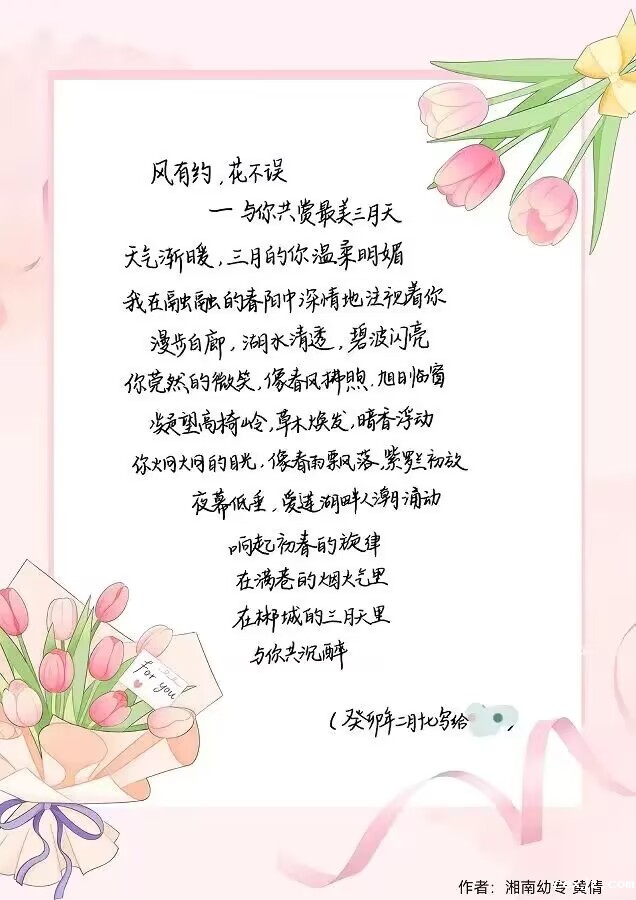 风有约，花不误
一与你共赏最美三月天
天气渐暖，三月的你温柔明媚
我在融融的春阳中深情地注视着你
漫步白廊，湖水清透，碧波闪亮
你莞然的微笑，像春风拂煦，旭日临窗
凝望高椅岭，草木焕发，暗香浮动
你炯炯的目光，像春雨飘落，紫罗初放
夜幕低垂，爱莲湖畔人潮涌动
响起初春的旋律
在满巷的烟火气里
在郴城的三月天里
与你共沉醉
（癸卯年二月十七写给）
for you
作者：湘南幼专 黄倩